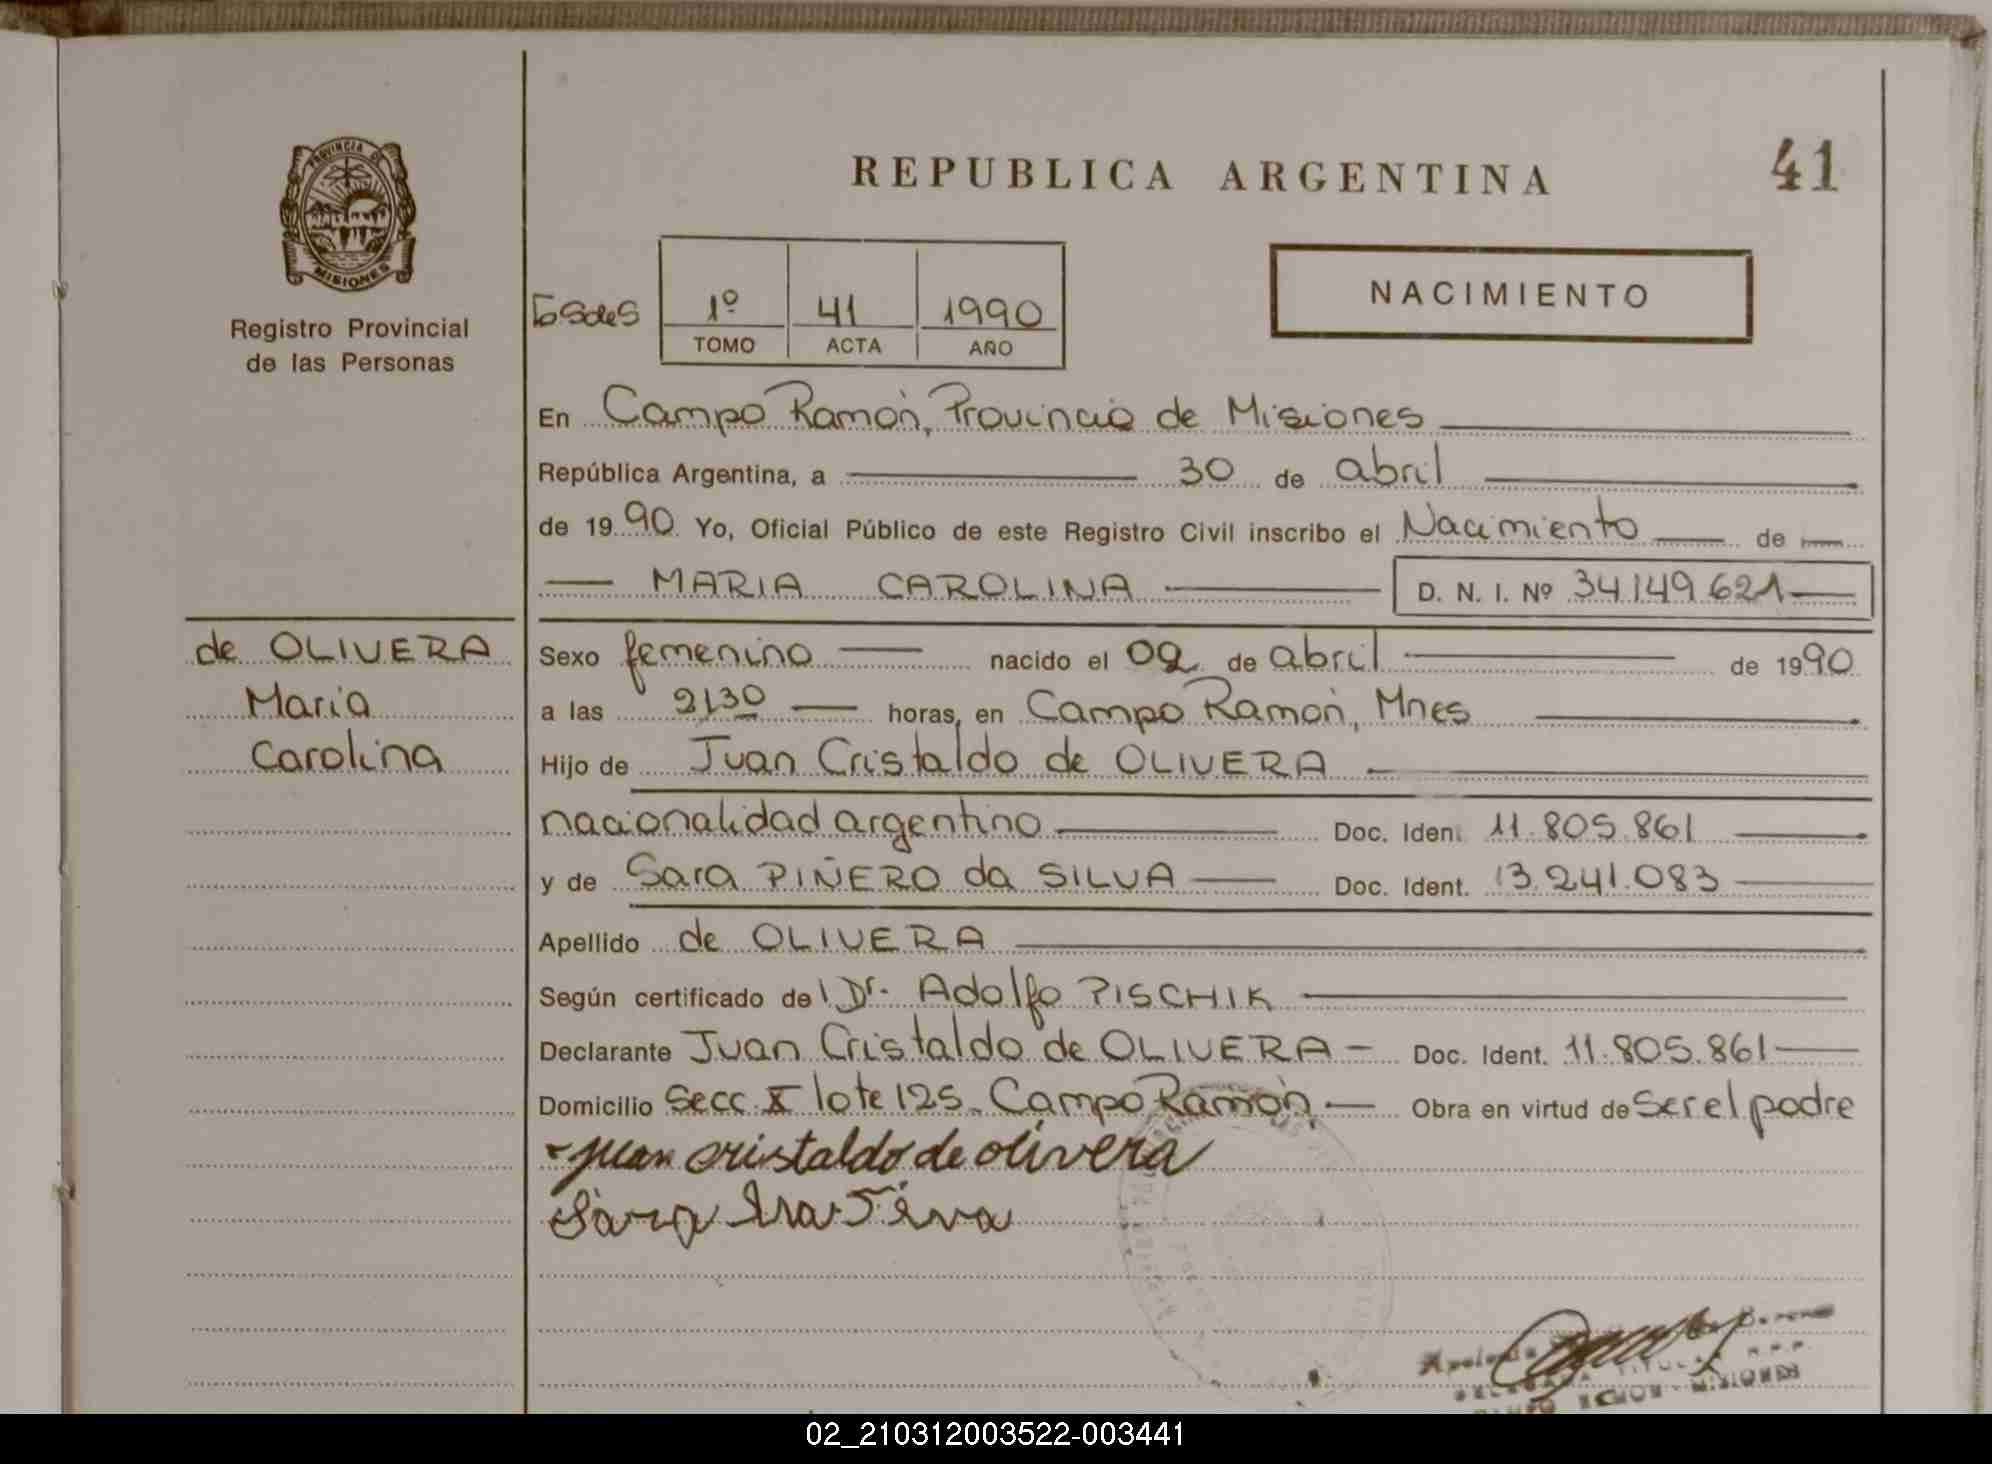 REPUBLICA ARGENTINA
41
PROVINCIA DE
MISIONES
Registro Provincial
de las Personas
1º 41 1990
TOMO ACTA AÑO
NACIMIENTO
En Campo Ramón, Provincia de Misiones
República Argentina, a 30 de abril
de 1990 Yo, Oficial Público de este Registro Civil inscribo el Nacimiento de
MARIA CAROLINA D. N. I. Nº 34.149.621
de OLIVERA
Maria
Carolina
Sexo femenino nacido el 02 de abril de 1990
a las 2130 horas, en Campo Ramón, Mnes
Hijo de Juan Cristaldo de OLIVERA
nacionalidad argentino Doc. Iden. 11.805.861
y de Sara PIÑERO da SILVA Doc. Ident. 13.241.083
Apellido de OLIVERA
Según certificado de Dr. Adolfo PISCHIK
Declarante Juan Cristaldo de OLIVERA Doc. Ident. 11.805.861
Domicilio Secc. X lote 125. Campo Ramón. Obra en virtud de ser el padre
juan cristaldo de olivera
Sara
TITULAR R.P.P.
MISIONES
02_210312003522-003441